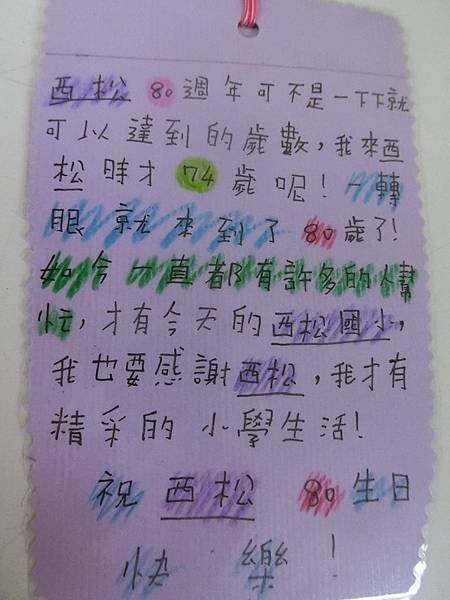 西松80週年可不是一下下就
可以達到的歲數，我來西
松時才74歲呢！一轉
眼就來到了80歲了！
如今一直都有許多的幫
忙，才有今天的西松國小，
我也要感謝西松，我才有
精采的小學生活！
祝西松 80生日
快樂！